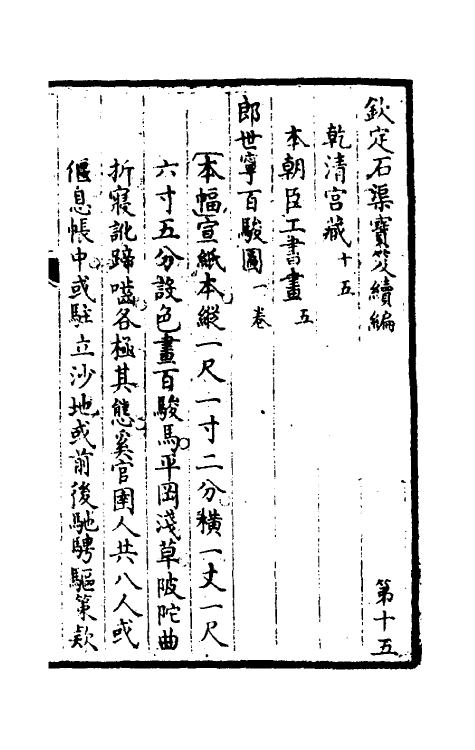 欽定石渠寶笈續編 第十五
乾清宮藏十五
本朝臣工書畫五
郎世寧百駿圖一卷
本幅宣紙本縱一尺一寸二分橫一丈一尺
六寸五分設色畫百駿馬平岡淺草陂陀曲
折寢訛蹄嚙各極其態奚官圉人共八人或
偃息帳中或駐立沙地或前後馳騁驅策款